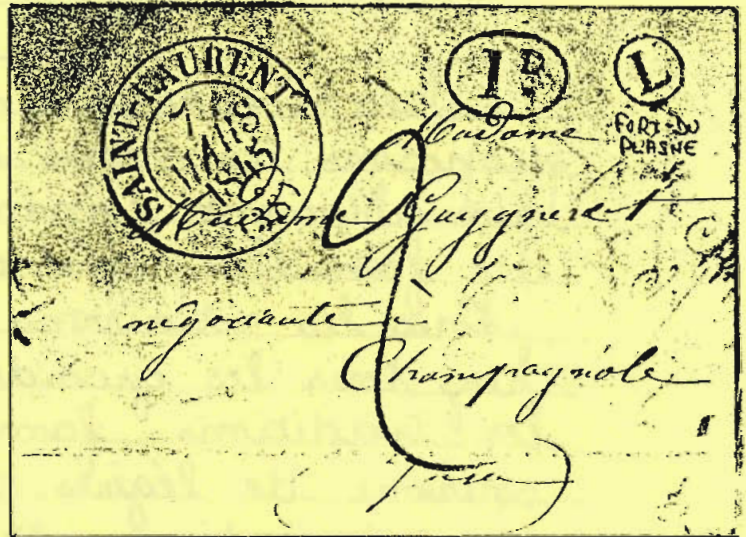 SAINT-LAURENT
7
MARS
1D
L
FORT-DU
PLASNE
Madame
Madame
négociante à
Champagnole
Jura
2